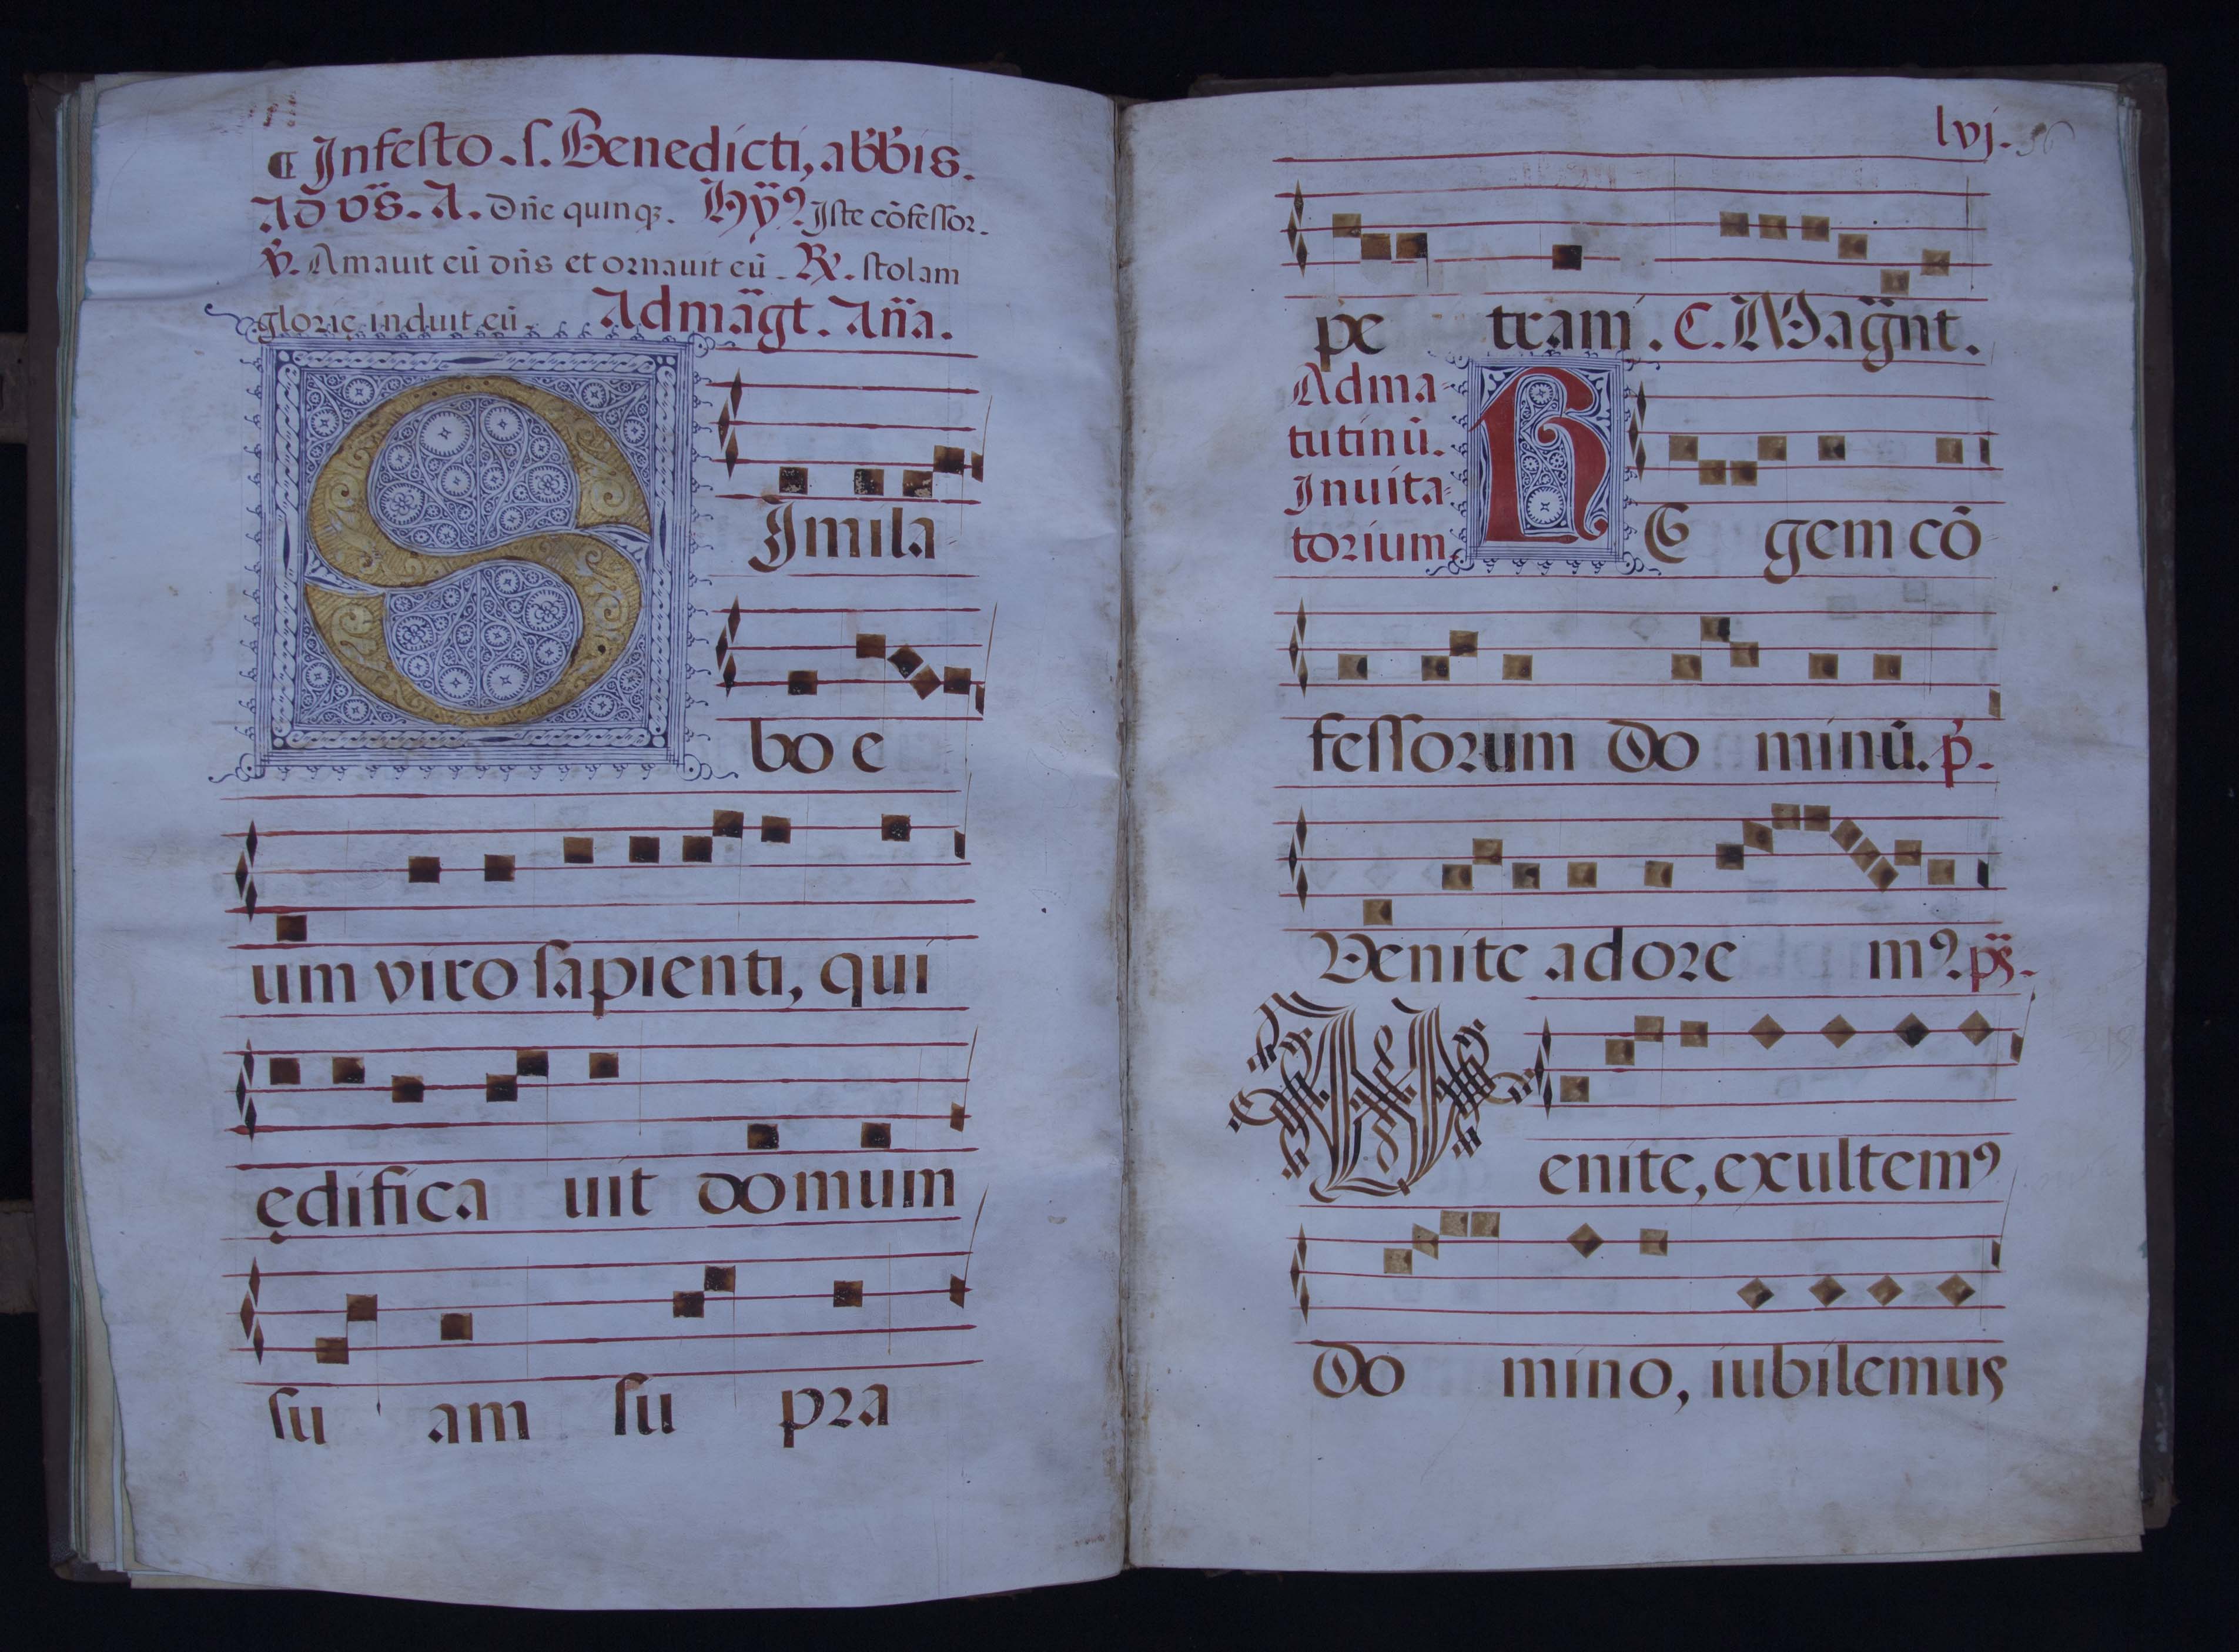 ¶ Infesto. s. Benedicti, abb̃is.
Ad vs̃. A. Dñe quinqꝫ. Hỹꝰ Iste cõfessor.
℣. Amauit eũ dñs et ornauit eũ. ℟. stolam
glorie induit eũ. Admãgt. Aña.
SImila
bo e
um viro sapienti, qui
ędifica uit domum
su am su pra
lvj. 56
pe tram. C. Mag̃nt.
Adma-
tutinũ.
Inuita-
torium.
RE gem cõ
fessorum Do minũ. p̃.
Venite adore mꝰ. ps̃.
Venite, exultemꝰ
Do mino, iubilemus